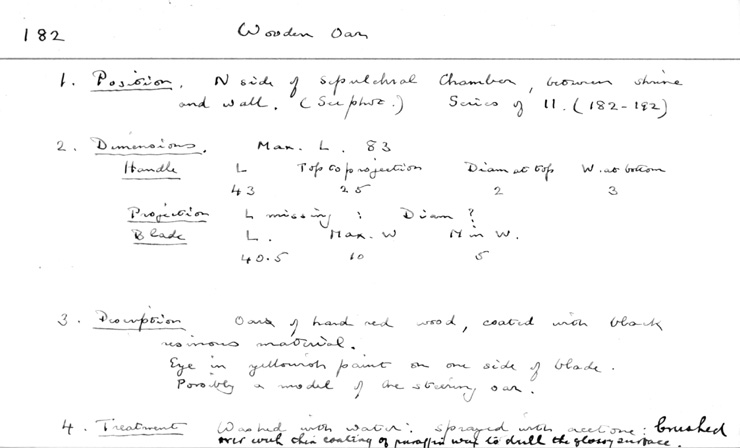 182 Wooden Oar
1. Position. N side of sepulchral Chamber, between shrine
and wall. (See phot.) Series of 11. (182-192)
2. Dimensions. Max. L. 83
Handle L Top to projection Diam at top W. at bottom
43 25 2 3
Projection L missing : Diam ?
Blade L. Max. W Min W.
40.5 10 5
3. Description Oar of hard red wood, coated with black
resinous material.
Eye in yellowish paint on one side of blade.
Possibly a model of the steering oar.
4. Treatment Washed with water: sprayed with acetone: brushed
over with thin coating of paraffin wax to dull the glossy surface.